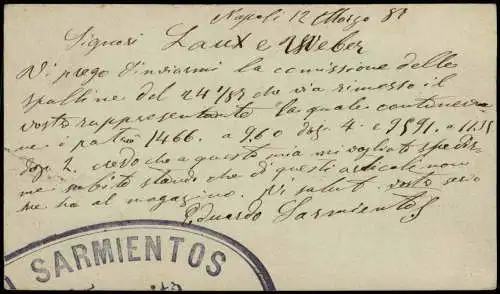 Napoli 12 Marzo 87
Signori Laux e Weber
Vi prego d'inviarmi la comissione delle
spalline del 24 1/87 che vi rimosso il
vostro rappresentante la quale conteneva
ne i patro 1466. a 9.60 doz. 4. e 9591. a 11.15
doz. 2. credo che a questo mia mi vogliate spedir
me subito stando che di questi articoli non
ne ha al magazino. Vi saluto vostro servo
Eduardo Sarmientos
SARMIENTOS